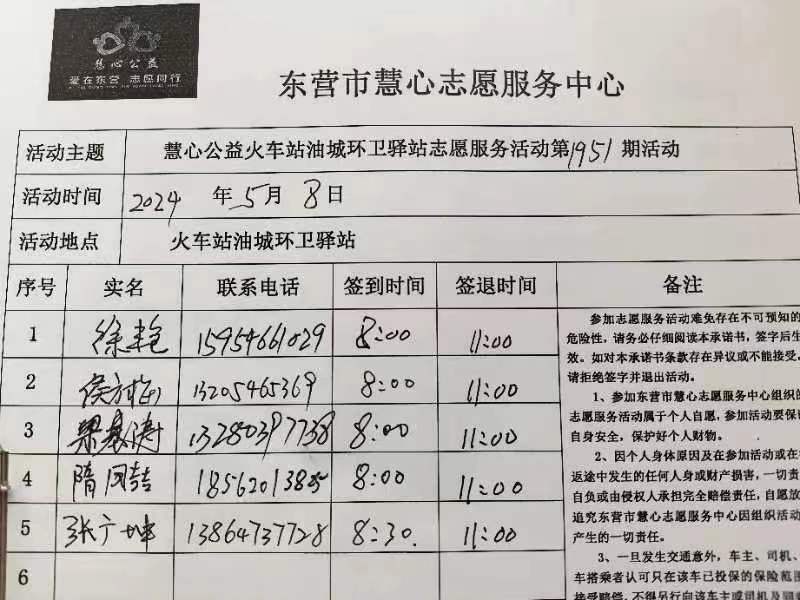 慧心公益
爱在东营 志愿同行
东营市慧心志愿服务中心
活动主题 慧心公益火车站油城环卫驿站志愿服务活动第1951期活动
活动时间 2024年5月8日
活动地点 火车站油城环卫驿站
序号 实名 联系电话 签到时间 签退时间 备注
1 徐艳 15954661029 8:00 11:00
2 侯 13205465369 8:00 11:00
3 梁慕涛 13280397738 8:00 11:00
4 隋同喆 18562013805 8:00 11:00
5 张广坤 13864737728 8:30. 11:00
6
参加志愿服务活动难免存在不可预知的
危险性,请务必仔细阅读本承诺书,签字后生
效。如对本承诺书条款存在异议或不能接受,
请拒绝签字并退出活动。
1、参加东营市慧心志愿服务中心组织的
志愿服务活动属于个人自愿,参加活动要保证
自身安全,保护好个人财物。
2、因个人身体原因及在参加活动或在
返途中发生的任何人身或财产损害,一切责
自负或由侵权人承担完全赔偿责任,自愿放
追究东营市慧心志愿服务中心因组织活动
产生的一切责任。
3、一旦发生交通意外,车主、司机、
车搭乘者认可只在该车已投保的保险范围
接受赔偿,不得另行向该车主或司机及同